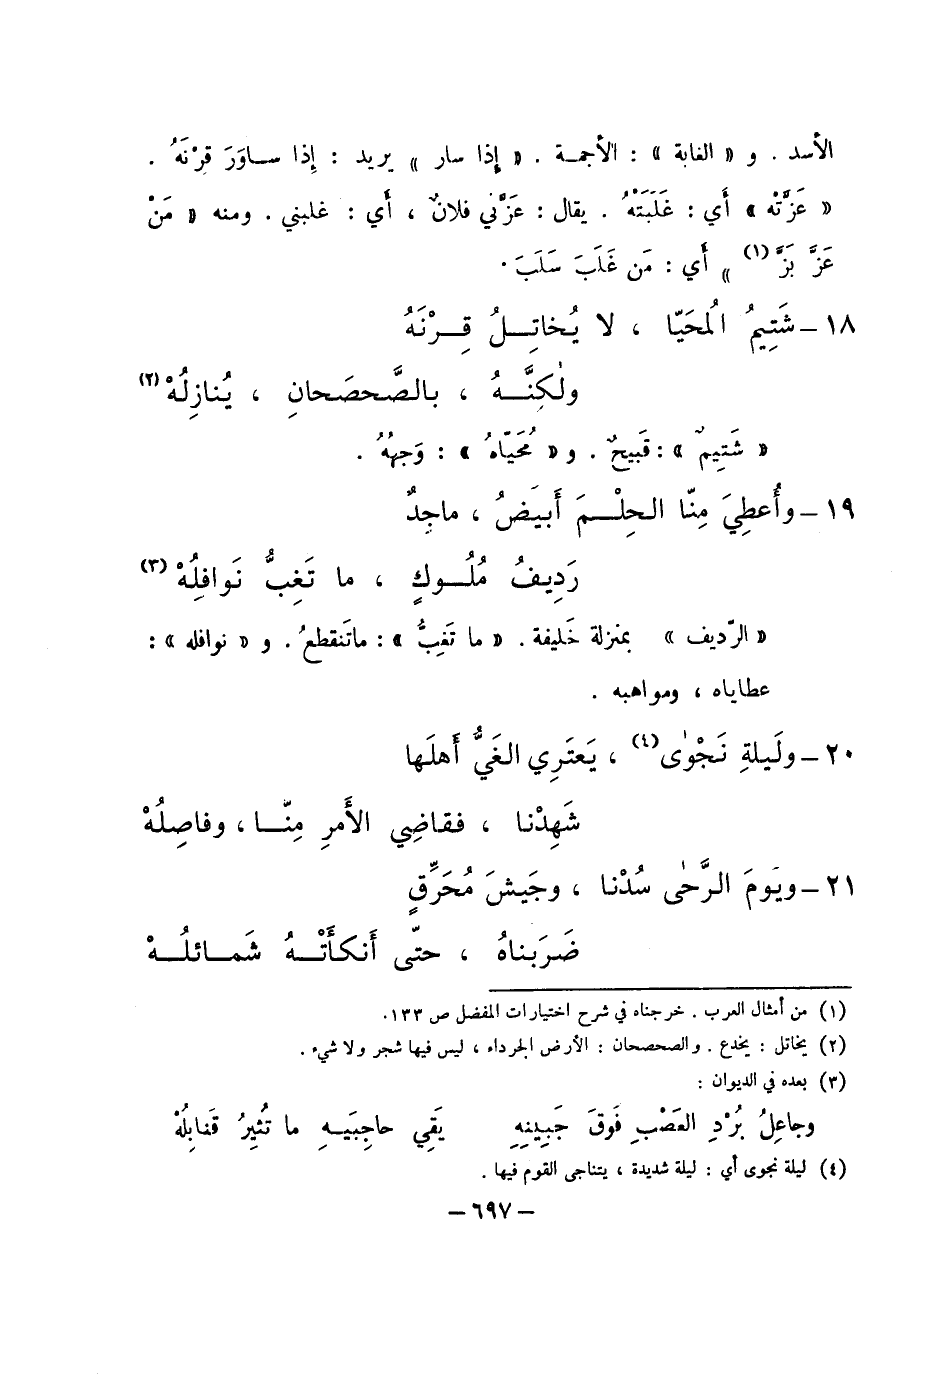 الأسد . و « الغابة » : الأجمـة . « إذا سار » يريد : إذا ســاوَرَ قِرْنَهُ .
« عَزَّتْه » أي : غَلَبَتْهُ . يقال : عَزَّني فلانٌ ، أي : غلبني . ومنه « مَنْ
عَزَّ بَزَّ (١) » أي : مَن غَلَبَ سَلَبَ .
١٨ – شَتِيمُ المُحَيّا ، لا يُخاتِــلُ قِــرْنَهُ
ولٰكِنَّــهُ ، بـالصَّحصَحانِ ، يُنازِلُهْ (٢)
« شَتِيمٌ » : قَبيحٌ . و « مُحَيّاهُ » : وَجهُهُ .
١٩ – وأُعطِيَ مِنّا الحِلْــمَ أَبيَضُ ، ماجِدٌ
رَدِيفُ مُلُــوكٍ ، ما تَغِبُّ نَوافِلُهْ (٣)
« الرّديف » بمنزلة خَليفة . « ما تَغِبُّ » : ماتَنقطعُ . و « نوافله » :
عطاياه ، ومواهبه .
٢٠ – ولَيلةِ نَجْوٰى (٤) ، يَعتَرِي الغَيُّ أَهلَها
شَهِدْنا ، فقاضِي الأَمرِ مِنّــا ، وفاصِلُهْ
٢١ – ويَومَ الرَّحٰى سُدْنا ، وجَيشَ مُحَرِّقٍ
ضَرَبناهُ ، حتّى أَنكَأَتْــهُ شَمــائلُــهْ
(١) من أمثال العرب . خرجناه في شرح اختيارات المفضل ص ١٣٣ .
(٢) يخاتل : يخدع . والصحصحان : الأرض الجرداء ، ليس فيها شجر ولا شيء .
(٣) بعده في الديوان :
وجاعِلُ بُرْدِ العَصْبِ فَوقَ جَبِينِهِ يَقِي حاجِبَيــهِ ما تُثِيرُ قَنابِلُهْ
(٤) ليلة نجوى أي : ليلة شديدة ، يتناجى القوم فيها .
– ٦٩٧ –